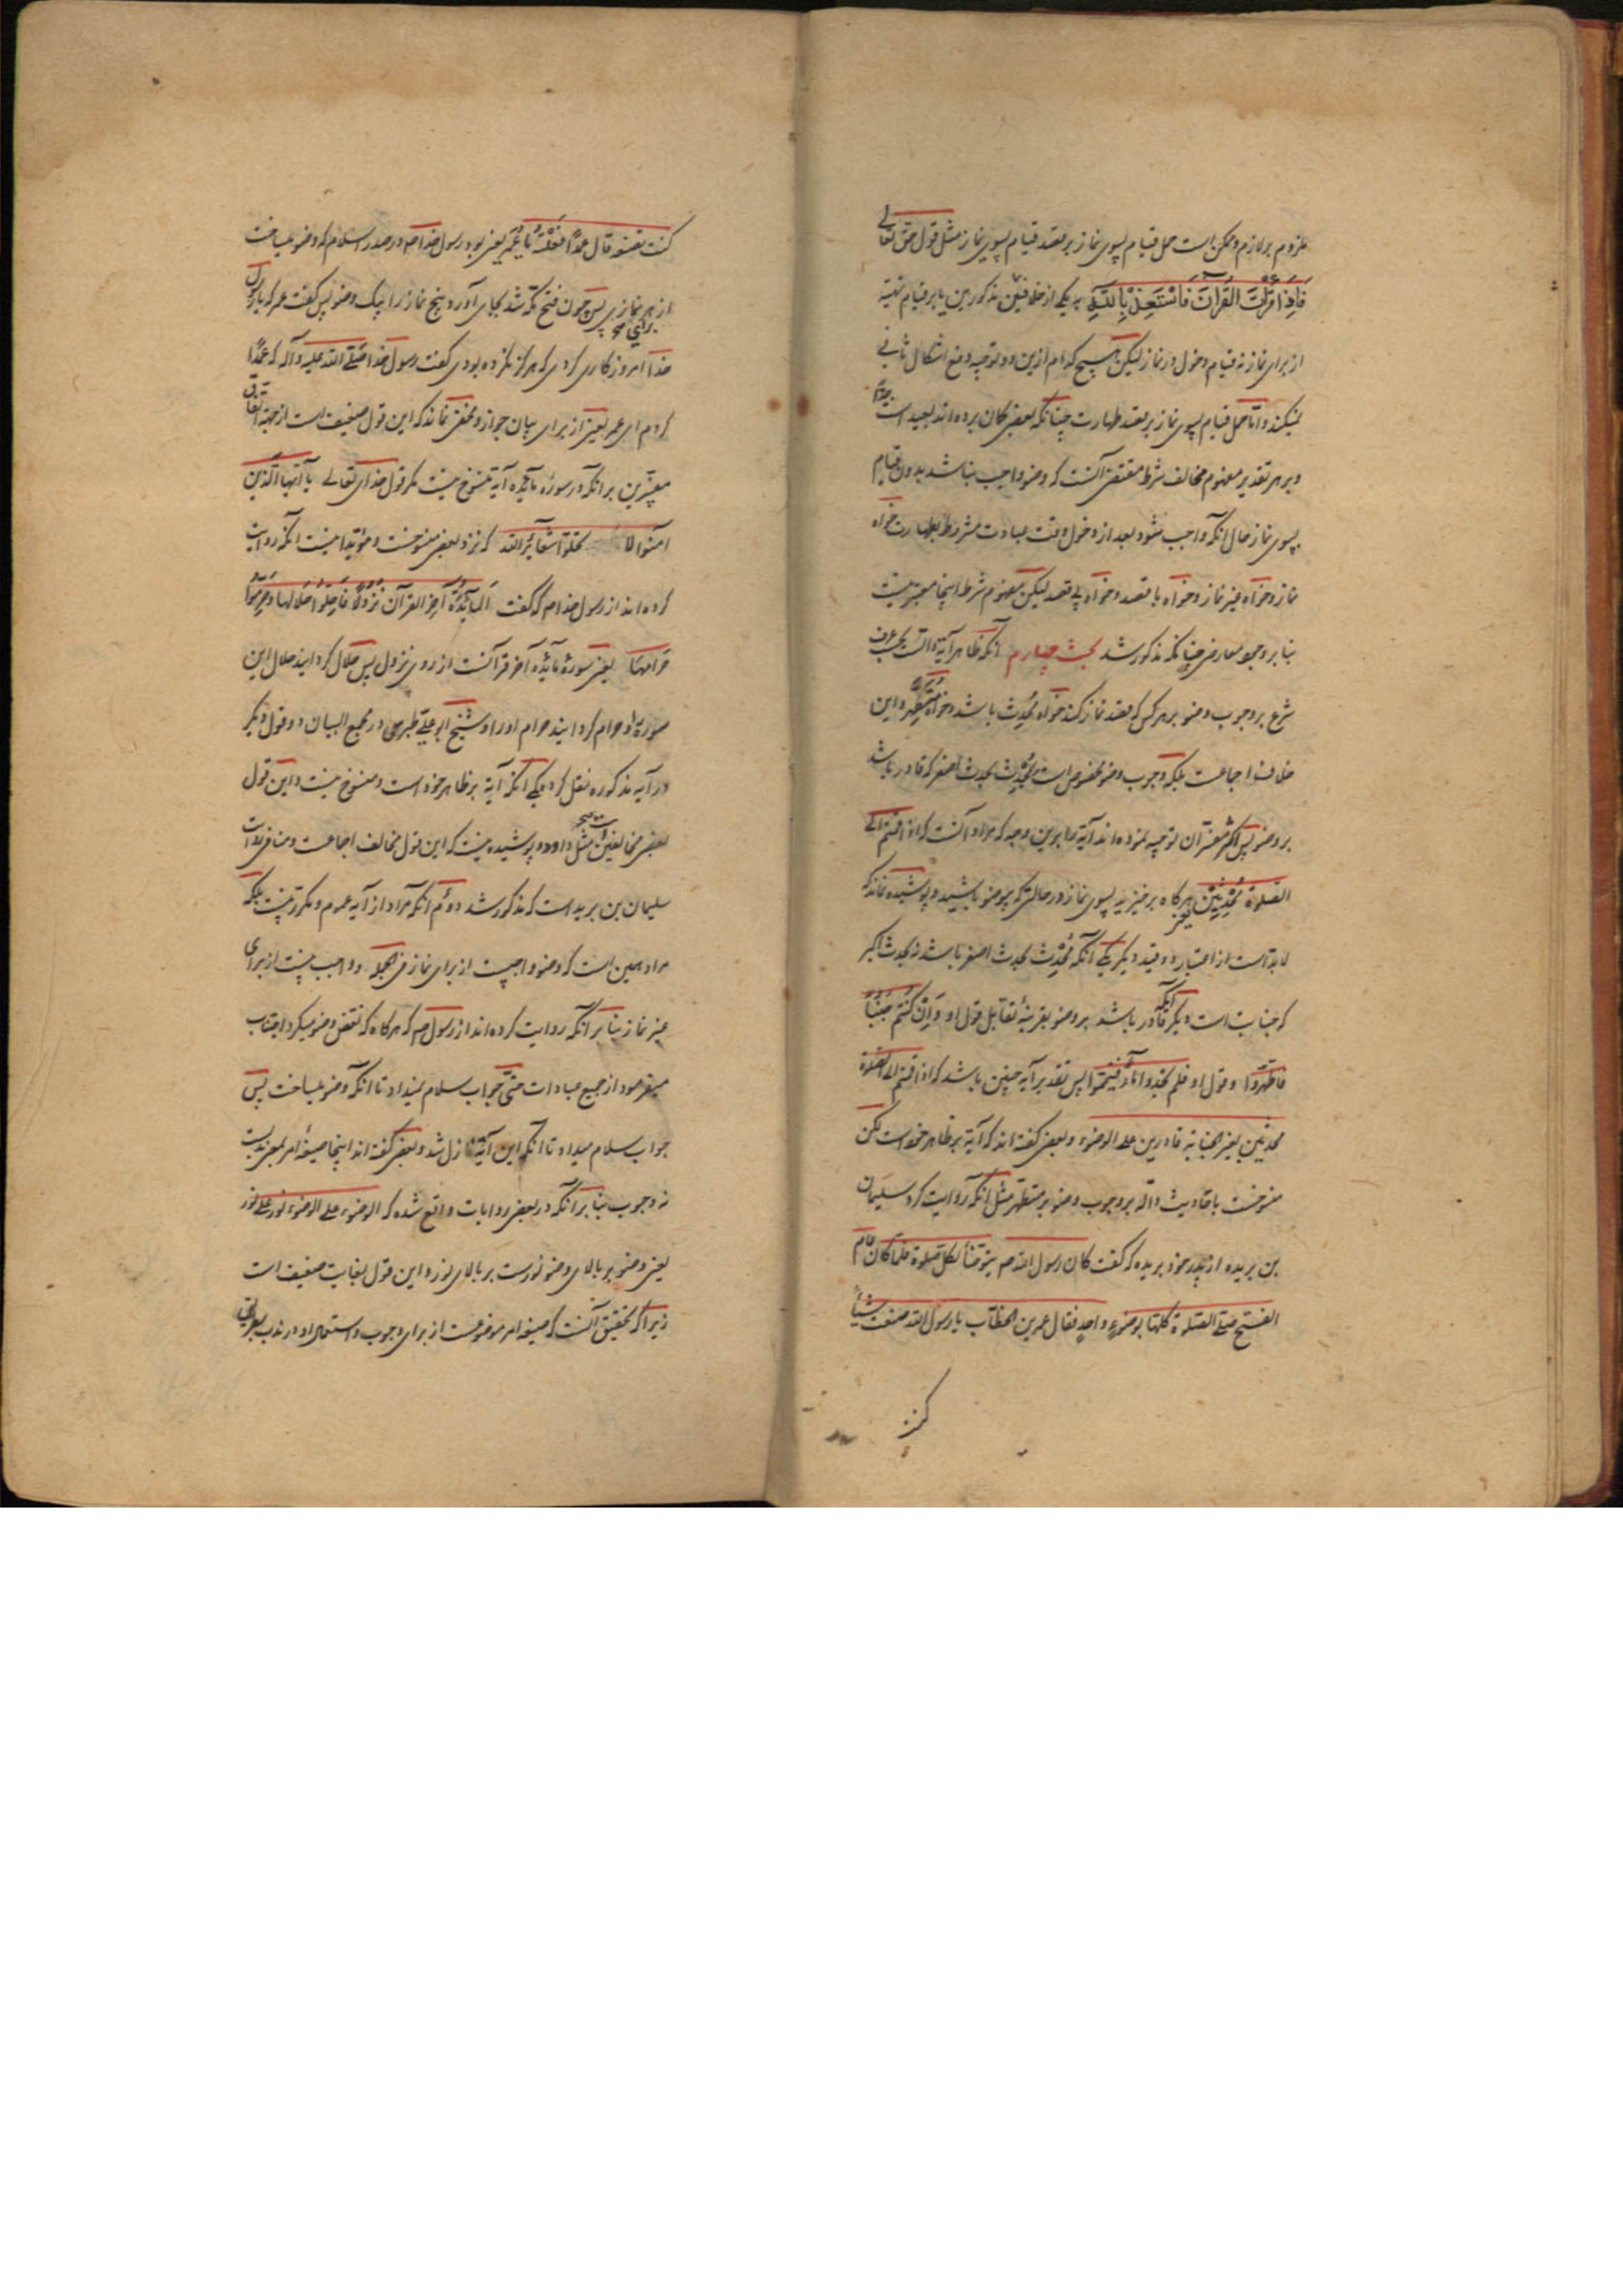 ملزوم بر لازم و ممکن است حمل قیام بسوی نماز بر قصد قیام بسوی نماز مثل قول حق تعالی
فَاِذَا قَرَاْتَ القُرانَ فَاسْتَعِذْ بِاللّهِ به یکی از علاقتین مذکورتین یا بر قیام تهیه
از برای نماز نه قیام دخول در نماز لیکن هیچ کدام ازین دو توجیه دفع اشکال ثانی
نمیکند و امّا حمل قیام بسوی نماز بر قصد طهارت چنانکه بعضی کمان برده اند بعید است جدّا
و بر هر تقدیر مفهوم مخالف شرط مقتضی آنست که وضو واجب نباشد بدون قیام
بسوی نماز حال آنکه واجب میشود بعد از دخول وقت عبادت مشروط بطهارت خواه
نماز و خواه غیر نماز و خواه با قصد و خواه بی قصد لیکن مفهوم شرط اینجا معتبر نیست
بنا بر وجود معارض چنانکه مذکور شد بحث چهارم آنکه ظاهر آیة دالست بحسب عرف
شرع بر وجوب وضو بر هر کس که قصد نماز کند خواه مُحدِث باشد و خواه مُتَطَهِّر و این
خلاف اجماعست بلکه وجوب وضو مخصوص است بمُحْدِث بحدث اصغر که قادر باشد
بر وضو پس اکثر مفسّران توجیه نموده اند آیة را برین وجه که مراد آنست که اذا قمتم الی
الصلوة مُحْدِثِیْنَ یعنی هرکاه برخیزید بسوی نماز در حالتی که بیوضو باشید و پوشیده نماند که
لابد است از اعتبار دو قید دیکر یکی آنکه مُحْدِث بحدث اصغر باشد نه بحدث اکبر
که جنابت است دیکر آنکه قادر باشد بر وضو بقرینهٔ تقابل قول او وَ اِنْ کُنْتُمْ جُنُبًا
فاطهروا و قول او فلم تجدوا ماءً فتیمّموا پس تقدیر آیه چنین باشد که اذا قمتم الی الصلوة
محدثین بغیر الجنابة قادرین علی الوضوء و بعضی کفته اند که آیة بر ظاهر خود است لکن
منسوخست باحادیث دالّه بر وجوب وضو بر متطهّر مثل آنکه روایت کرد سلیمان
بن بریده از پدر خود بریده که کفت کان رسول الله ص یتوضّأ لکل صلوة فلمّا کان عام
الفتح صلّی الصّلوة کلها بوضوءٍ واحدٍ فقال عمر بن الخطّاب یا رسول الله صنعت شیئاً
کنت
کنت تصنعه قال عمدًا فَعَلْتُهُ یا عُمَر یعنی بود رسول خدا ص در صدر اسلام که وضو میساخت
از برای هر نمازی پس چون فتح مکّه شد بجای آورد پنج نماز را بیک وضو پس کفت عمر که یا رسول
خدا امروز کاری کردی که هرکز نکرده بودی کفت رسول خدا صلّی الله علیه و آله که عمدًا
کردم ای عمر یعنی از برای بیان جواز و مخفی نماند که این قول ضعیف است از جهة اتفاق
مفسّرین بر آنکه در سورهٔ مائده آیهٔ منسوخ نیست مکر قول خدای تعالی یا أیّها الّذین
آمنوا لا تحلّوا شعائر الله که نزد بعضی منسوخست و مؤید اینست آنکه روایت
کرده اند از رسول خدا ص که کفت المائِدَةُ آخِرُ القرآن نُزُولًا فَاَحِلُّوا حَلالَها وَ حَرِّمُوا
حَرامَها یعنی سورهٔ مائده آخر قرآنست از روی نزول پس حلال کردانید حلال این
سوره را و حرام کردانید حرام او را و شیخ ابو علی طبرسی در مجمع البیان دو قول دیکر
در آیه مذکوره نقل کرد یکی آنکه آیة بر ظاهر خود است و منسوخ نیست و این قول
بعضی مخالفین است مثل داود و پوشیده نیست که این قول مخالف اجماعست و منافی روایت
سلیمان بن بریده است که مذکور شد دوّم آنکه مراد از آیه عموم و مکرر نیست بلکه
مراد همین است که وضو واجبست از برای نماز فی الجمله و واجب نیست از برای
غیر نماز بنا بر آنکه روایت کرده اند از رسول ص که هرکاه که نقض وضو میکرد اجتناب
میفرمود از جمیع عبادات حتّی جواب سلام نمیداد تا آنکه وضو میساخت پس
جواب سلام میداد تا آنکه این آیة نازل شد و بعضی کفته اند اینجا صیغهٔ امر بمعنی ندبست
نه وجوب بنا بر آنکه در بعضی روایات واقع شده که الوضوء علی الوضوء نور علی نور
یعنی وضو بر بالای وضو نورست بر بالای نور و این قول بغایت ضعیف است
زیرا که تحقیق آنست که صیغهٔ امر موضوعست از برای وجوب و استعمال او در ندب بطریق